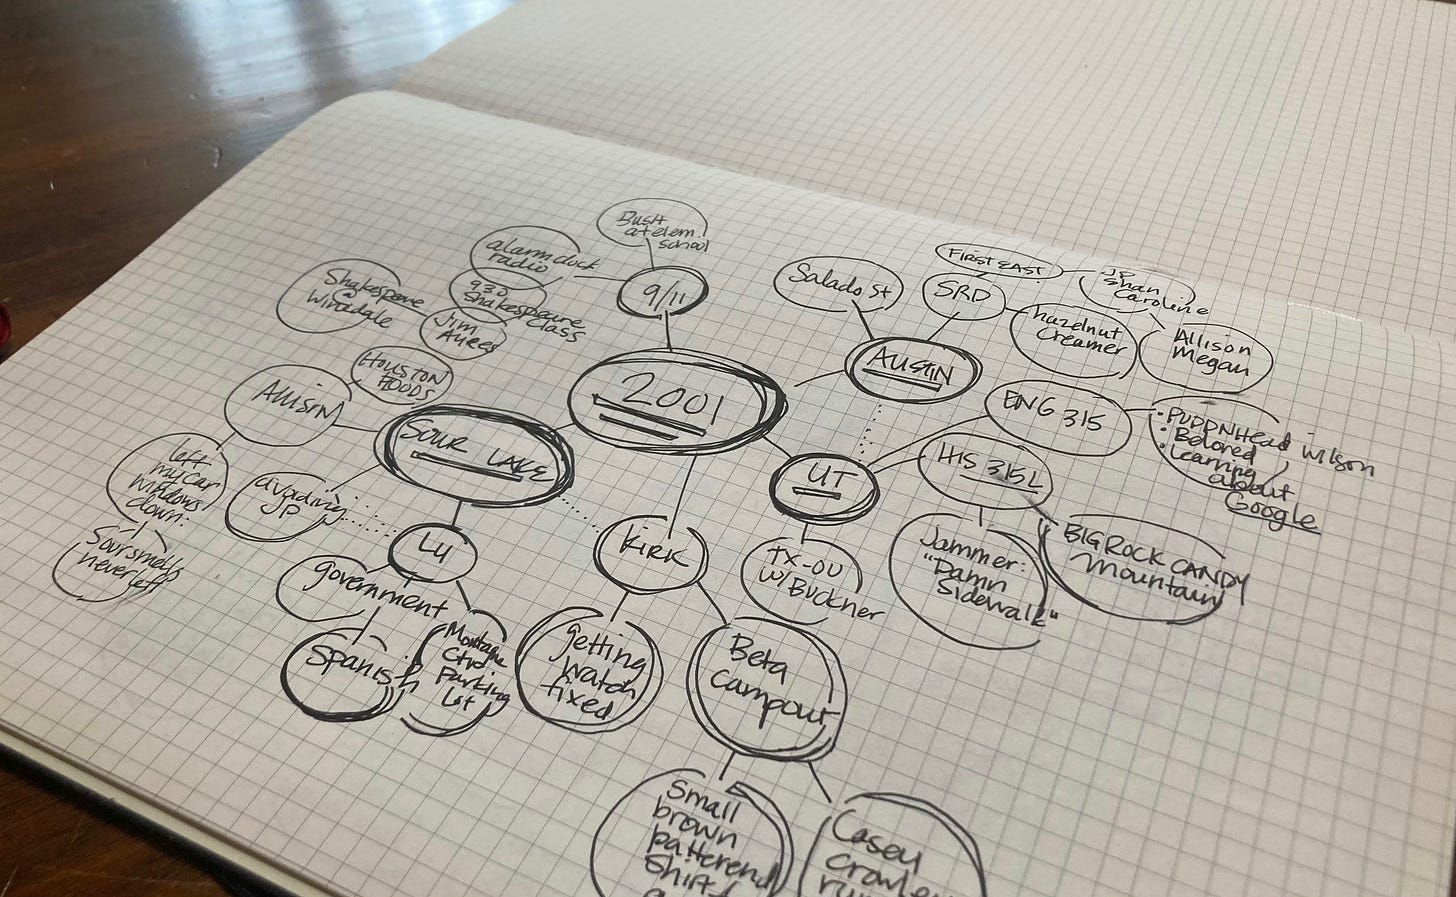 Bush
at elem.
school
alarm clock
radio
9/11
930
Shakespeare
class
Shakespeare
@
Winedale
Jim
Houston
FLOODS
Allison
Salado St
FIRST EAST
JP
Shan
Caroline
SRD
hazelnut
Creamer
Allison
Megan
AUSTIN
2001
SOUR LAKE
ENG 315
• PUDDNHead Wilson
• Beloved
• Learning
about
Google
HIS 315L
UT
left
my car
windows
down:
Sour smells
never left
avoiding
JP
LU
KIRK
TX-OU
w/ Buckner
Jammer:
"Damn
Sidewalk"
BIG ROCK CANDY
Mountain
government
Spanish
Montagne
Ctr
Parking
Lot
getting
watch
fixed
Beta
campout
Small
brown
patterend
Shirt
Casey
Crowley